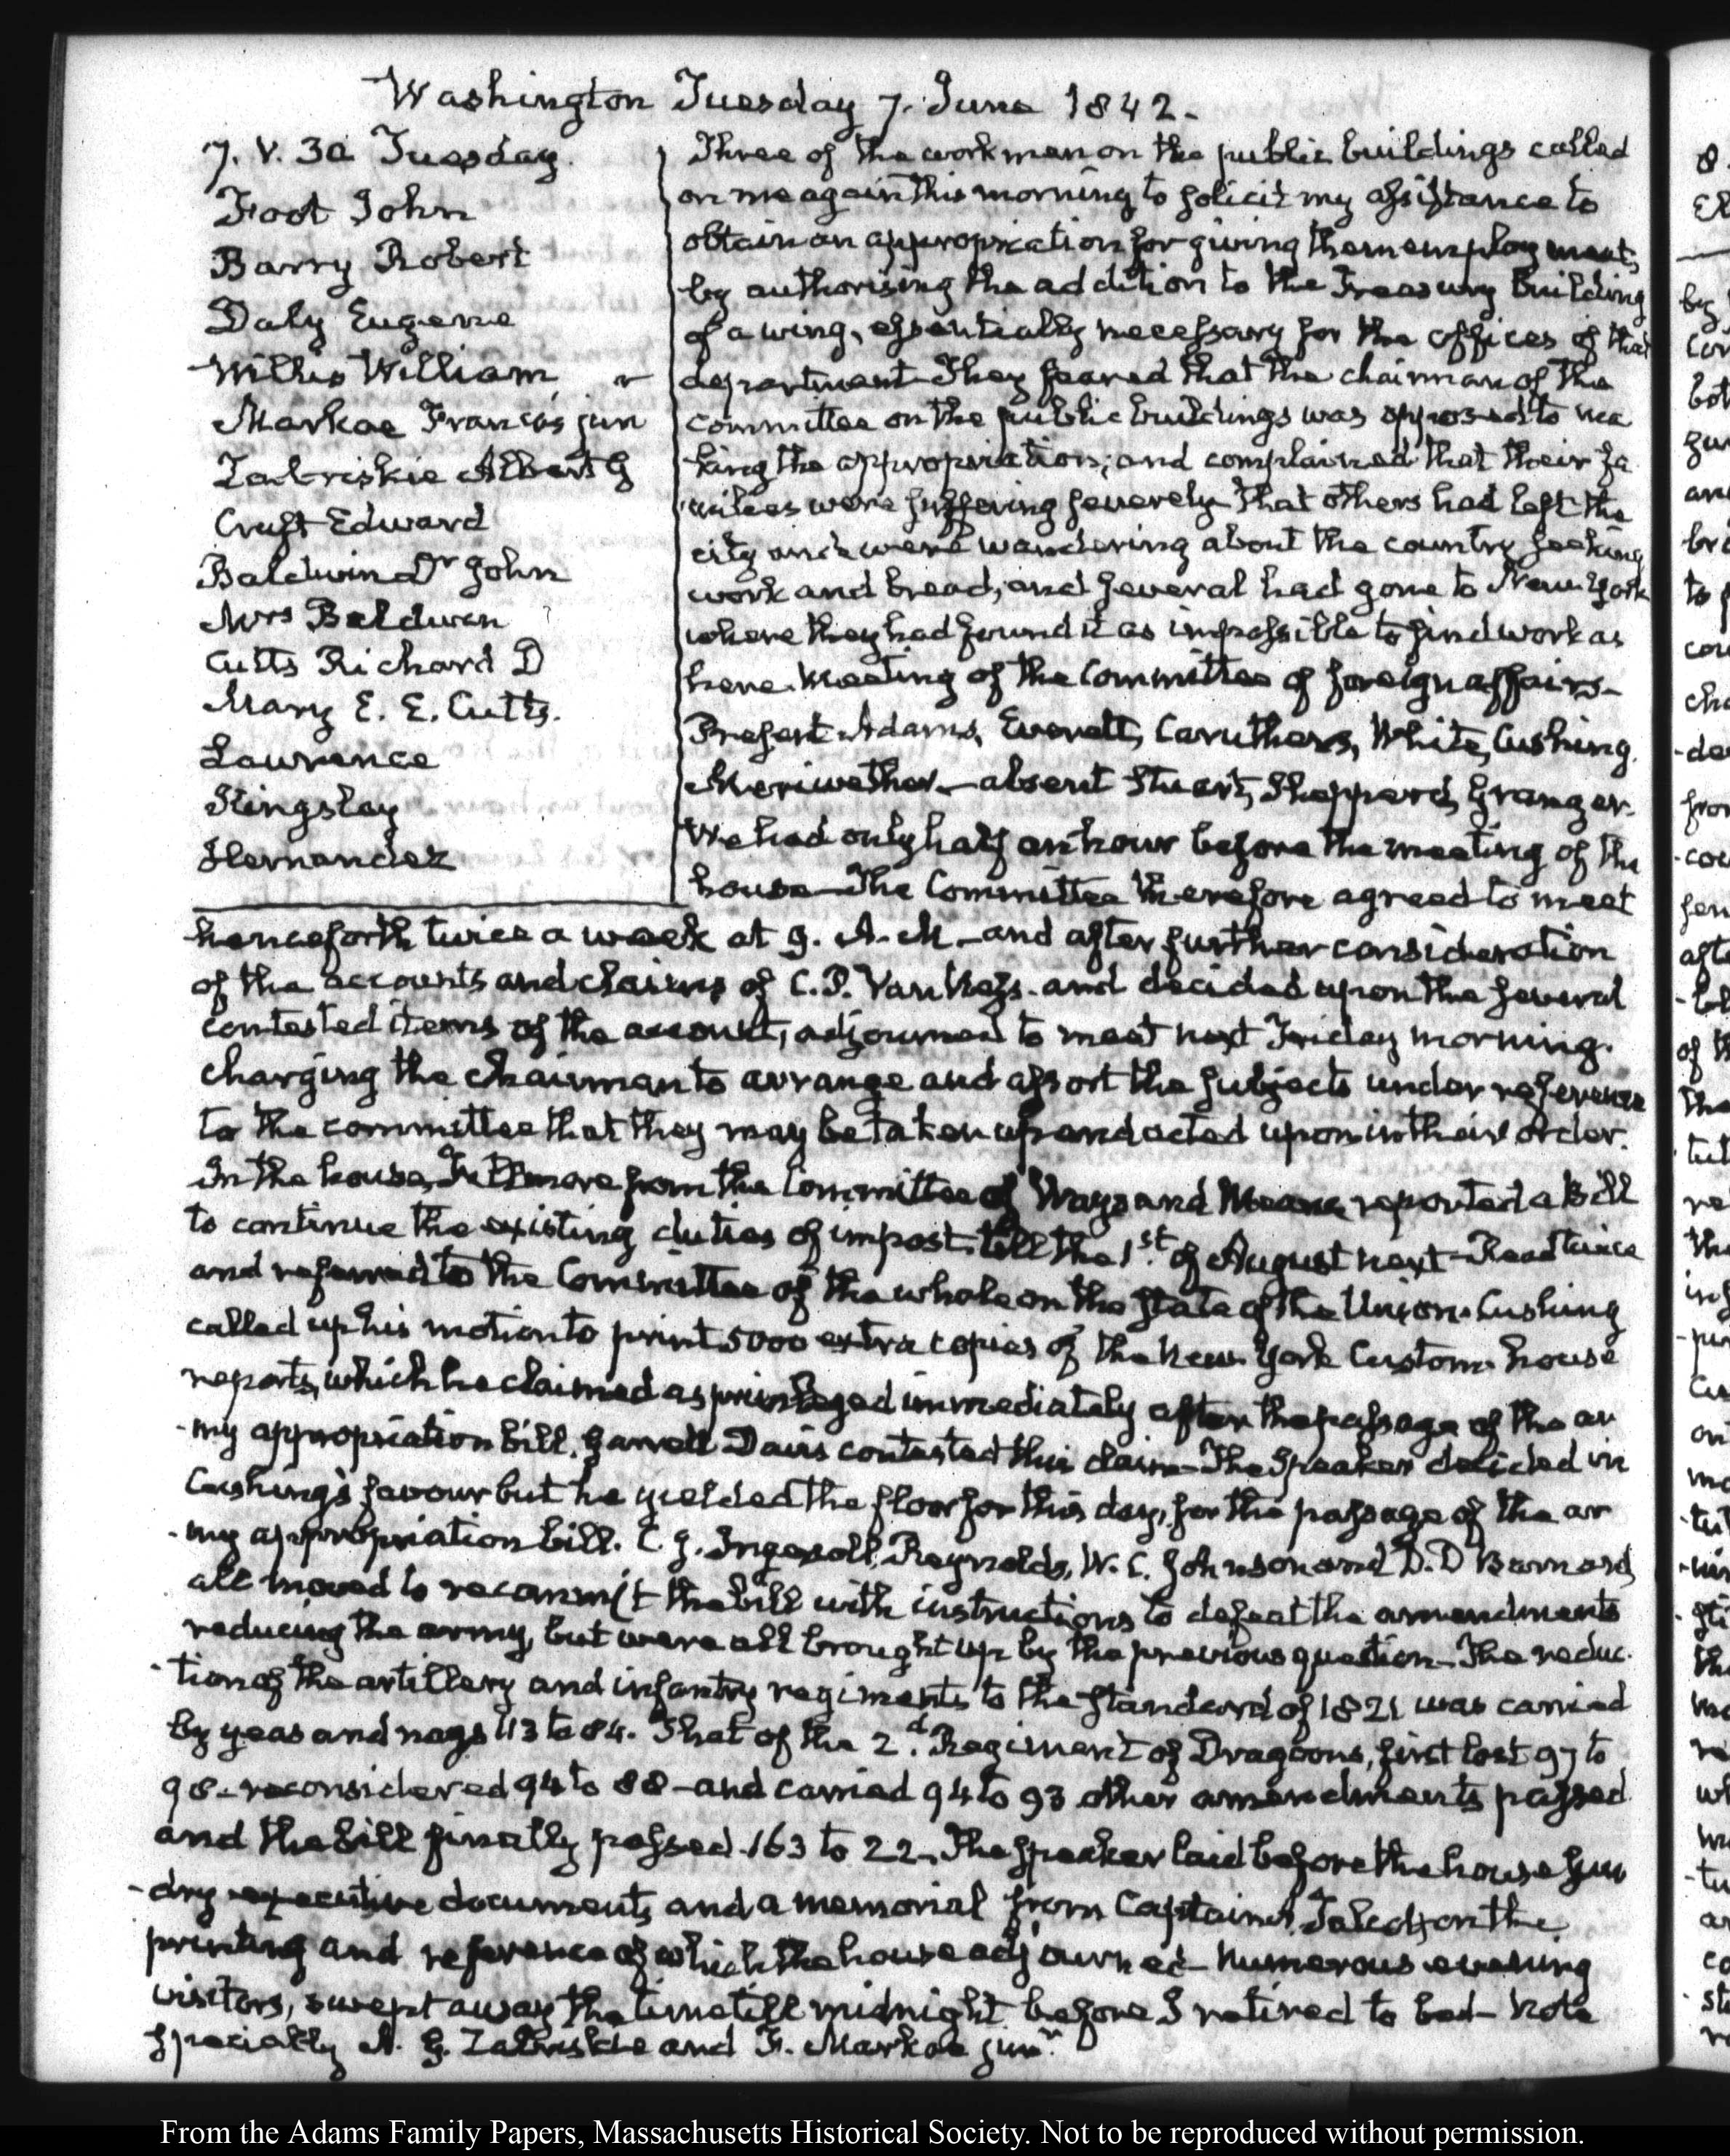 Washington Tuesday 7. June 1842.
7. V. 30 Tuesday.
Foot John
Barry Robert
Daly Eugene
Willis William
Markoe Francis jun
Zabriskie Albert G
Cruft Edward
Baldwin Dr John
Mrs Baldwin
Cutts Richard D
Mary E. E. Cutts.
Lawrence
Kingsley
Hernandez
Three of the workmen on the public buildings called
on me again this morning to solicit my assistance to
obtain an appropriation for giving them employment,
by authorising the addition to the Treasury building
of a wing, essentially necessary for the offices of that
department. They feared that the chairman of the
committee on the public buildings was opposed to ma
king the appropriation; and complained that their fa
milies were suffering severely That others had left the
city and were wandering about the country seeking
work and bread, and several had gone to New-York
where they had found it as impossible to find work as
here. Meeting of the Committee of foreign affairs—
Present Adams, Everett, Caruthers, White, Cushing,
Meriwether.—absent Stuart, Shepperd, Granger.
We had only half an hour before the meeting of the
house—The Committee therefore agreed to meet
henceforth twice a week at 9. A.M.—and after further consideration
of the accounts and claims of C. P. Van Ness—and decided upon the several
contested items of the account, adjourned to meet next Friday morning.
charging the chairman to arrange and assort the subjects under reference
to the committee that they may be taken up and acted upon in their order.
In the house, Fillmore from the Committee of Ways and Means reported a Bill
to continue the existing duties of impost till the 1st. of August next—Read twice
and referred to the Committee of the whole on the state of the Union. Cushing
called up his motion to print 5000 extra copies of the New-York Custom-house
reports, which he claimed as privileged immediately after the passage of the ar
-my appropriation bill. Garrett Davis contested this claim—The Speaker decided in
Cushing's favour but he yielded the floor for this day, for the passage of the ar
-my appropriation bill. C. J. Ingersoll, Reynolds, W. C. Johnson and D. D Barnard
all moved to recommit the bill with instructions to defeat the amendments
reducing the army, but were all brought up by the previous question—The reduc-
-tion of the artillery and infantry regiments to the standard of 1821 was carried
by yeas and nays 113 to 84. That of the 2d. Regiment of Dragoons, first lost 97 to
98—reconsidered 94 to 88—and carried 94 to 93 other amendments passed
and the bill finally passed. 163 to 22—The Speaker laid before the house sun
-dry executive documents and a memorial from Captain on the
printing and reference of which the house adjourned—Numerous evening
visitors, swept away the time till midnight before I retired to bed—Note
specially A. G. Zabriskie and F. Markoe junr.
From the Adams Family Papers, Massachusetts Historical Society. Not to be reproduced without permission.